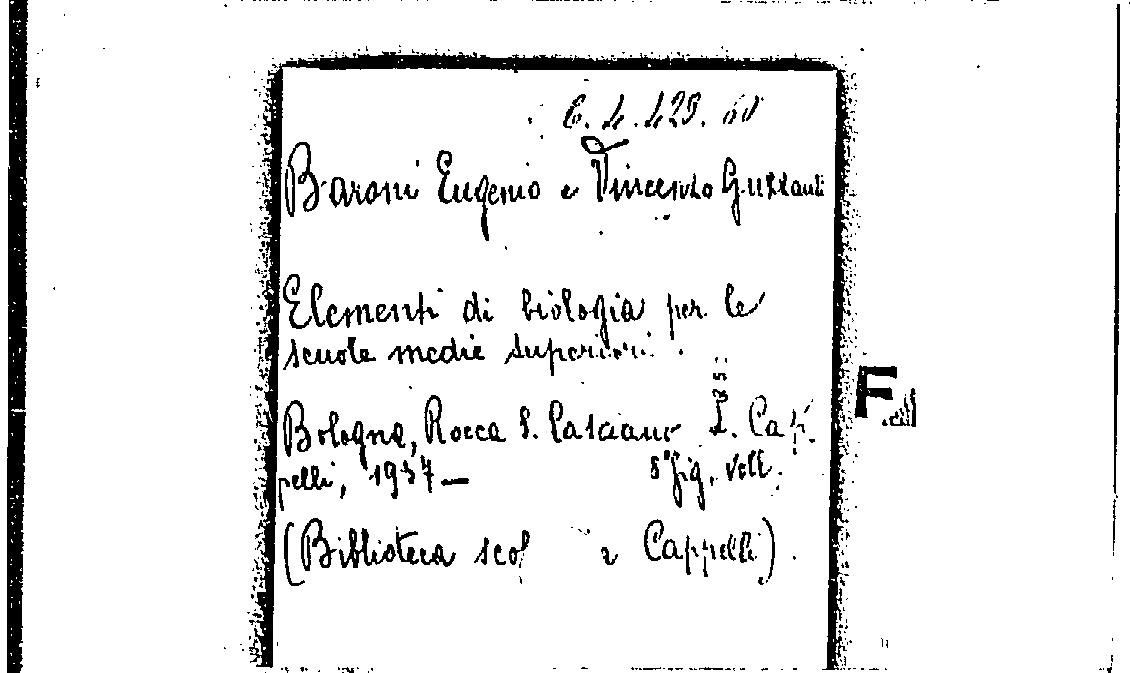 C. 4. 429. 60
Baroni Eugenio e Vincenzo Guzzanti
Elementi di biologia per le
scuole medie superiori.
Bologna, Rocca S. Casciano L. Cap
pelli, 1937 —
8° fig. voll.
(Biblioteca scol e Cappelli).
F